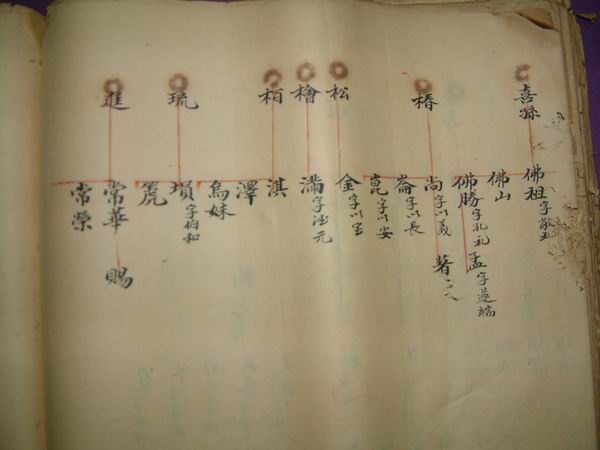 喜孫
椿
松
檜
柏
琉
進
佛祖字敬五
佛山
佛勝字孔礼
尚字以義
崙字以長
崑字以安
金字以宝
滿字法元
淇
澤
烏妹
塤字伯和
篪
常華
常榮
孟字遂端
著
賜